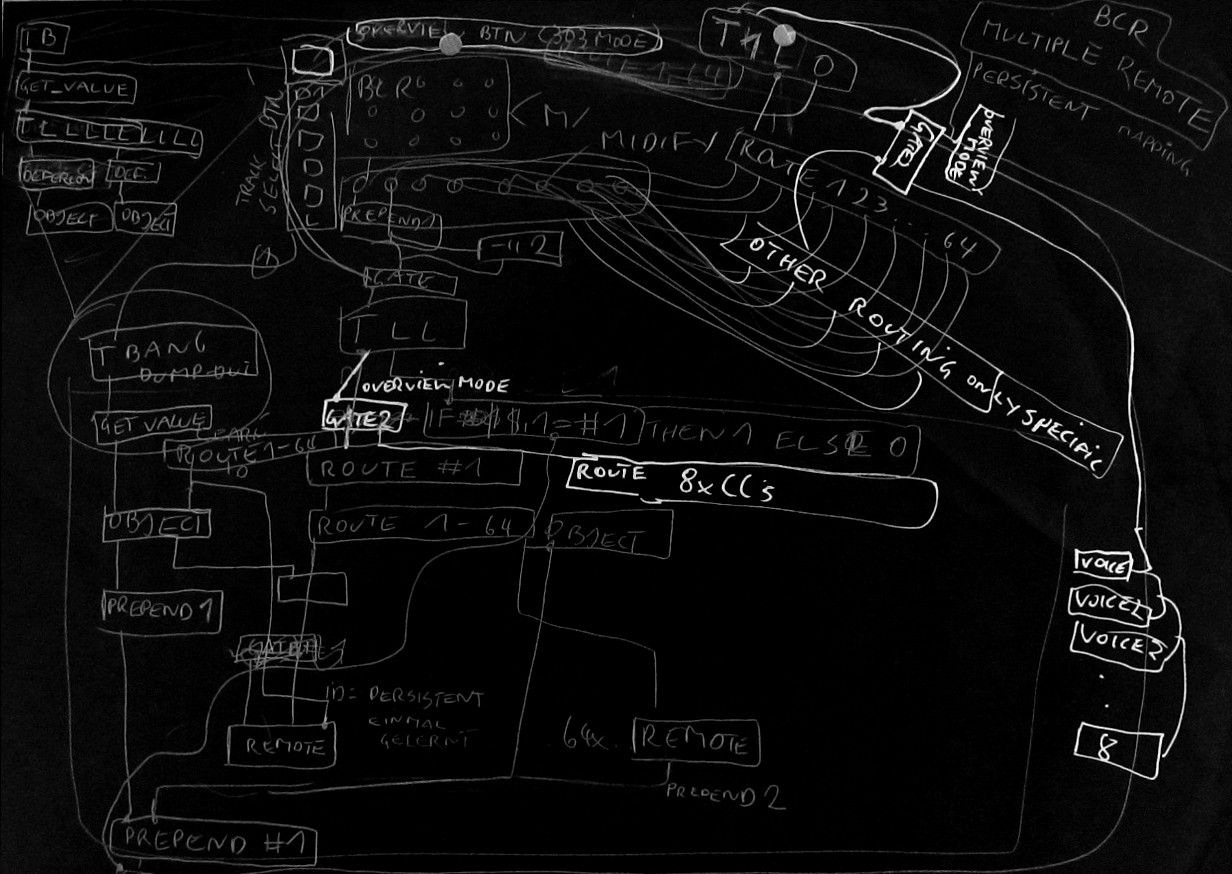 TB
GET_VALUE
T L L L L E L I L L
DEFERLOW
DEF.
OBJECT
OBJECT
OVERVIE BTN (303 MODE
TRACK
SELECT BTN
BCR
M/
MIDIFY
T 1 L 0
BCR
MULTIPLE REMOTE
PERSISTENT
MAPPING
GATE
OVERVIEW
MODE
ROUTE 1 2 3 ... 64
PREPEND 1
GATE
T L L
OTHER ROUTING ONLY SPECIFIC
T BANG
DUMP OUT
GET VALUE
ROUTE 1-64
ID
OBJECT
PREPEND 1
OVERVIEW MODE
GATE 2
IF $1 = #1 THEN 1 ELSE 0
ROUTE #1
ROUTE 8xCC's
ROUTE 1-64
OBJECT
GATE
ID = PERSISTENT
EINMAL
GELERNT
REMOTE
64x
REMOTE
PREPEND 2
PREPEND #1
VOICE
VOICE2
VOICE2
.
.
8